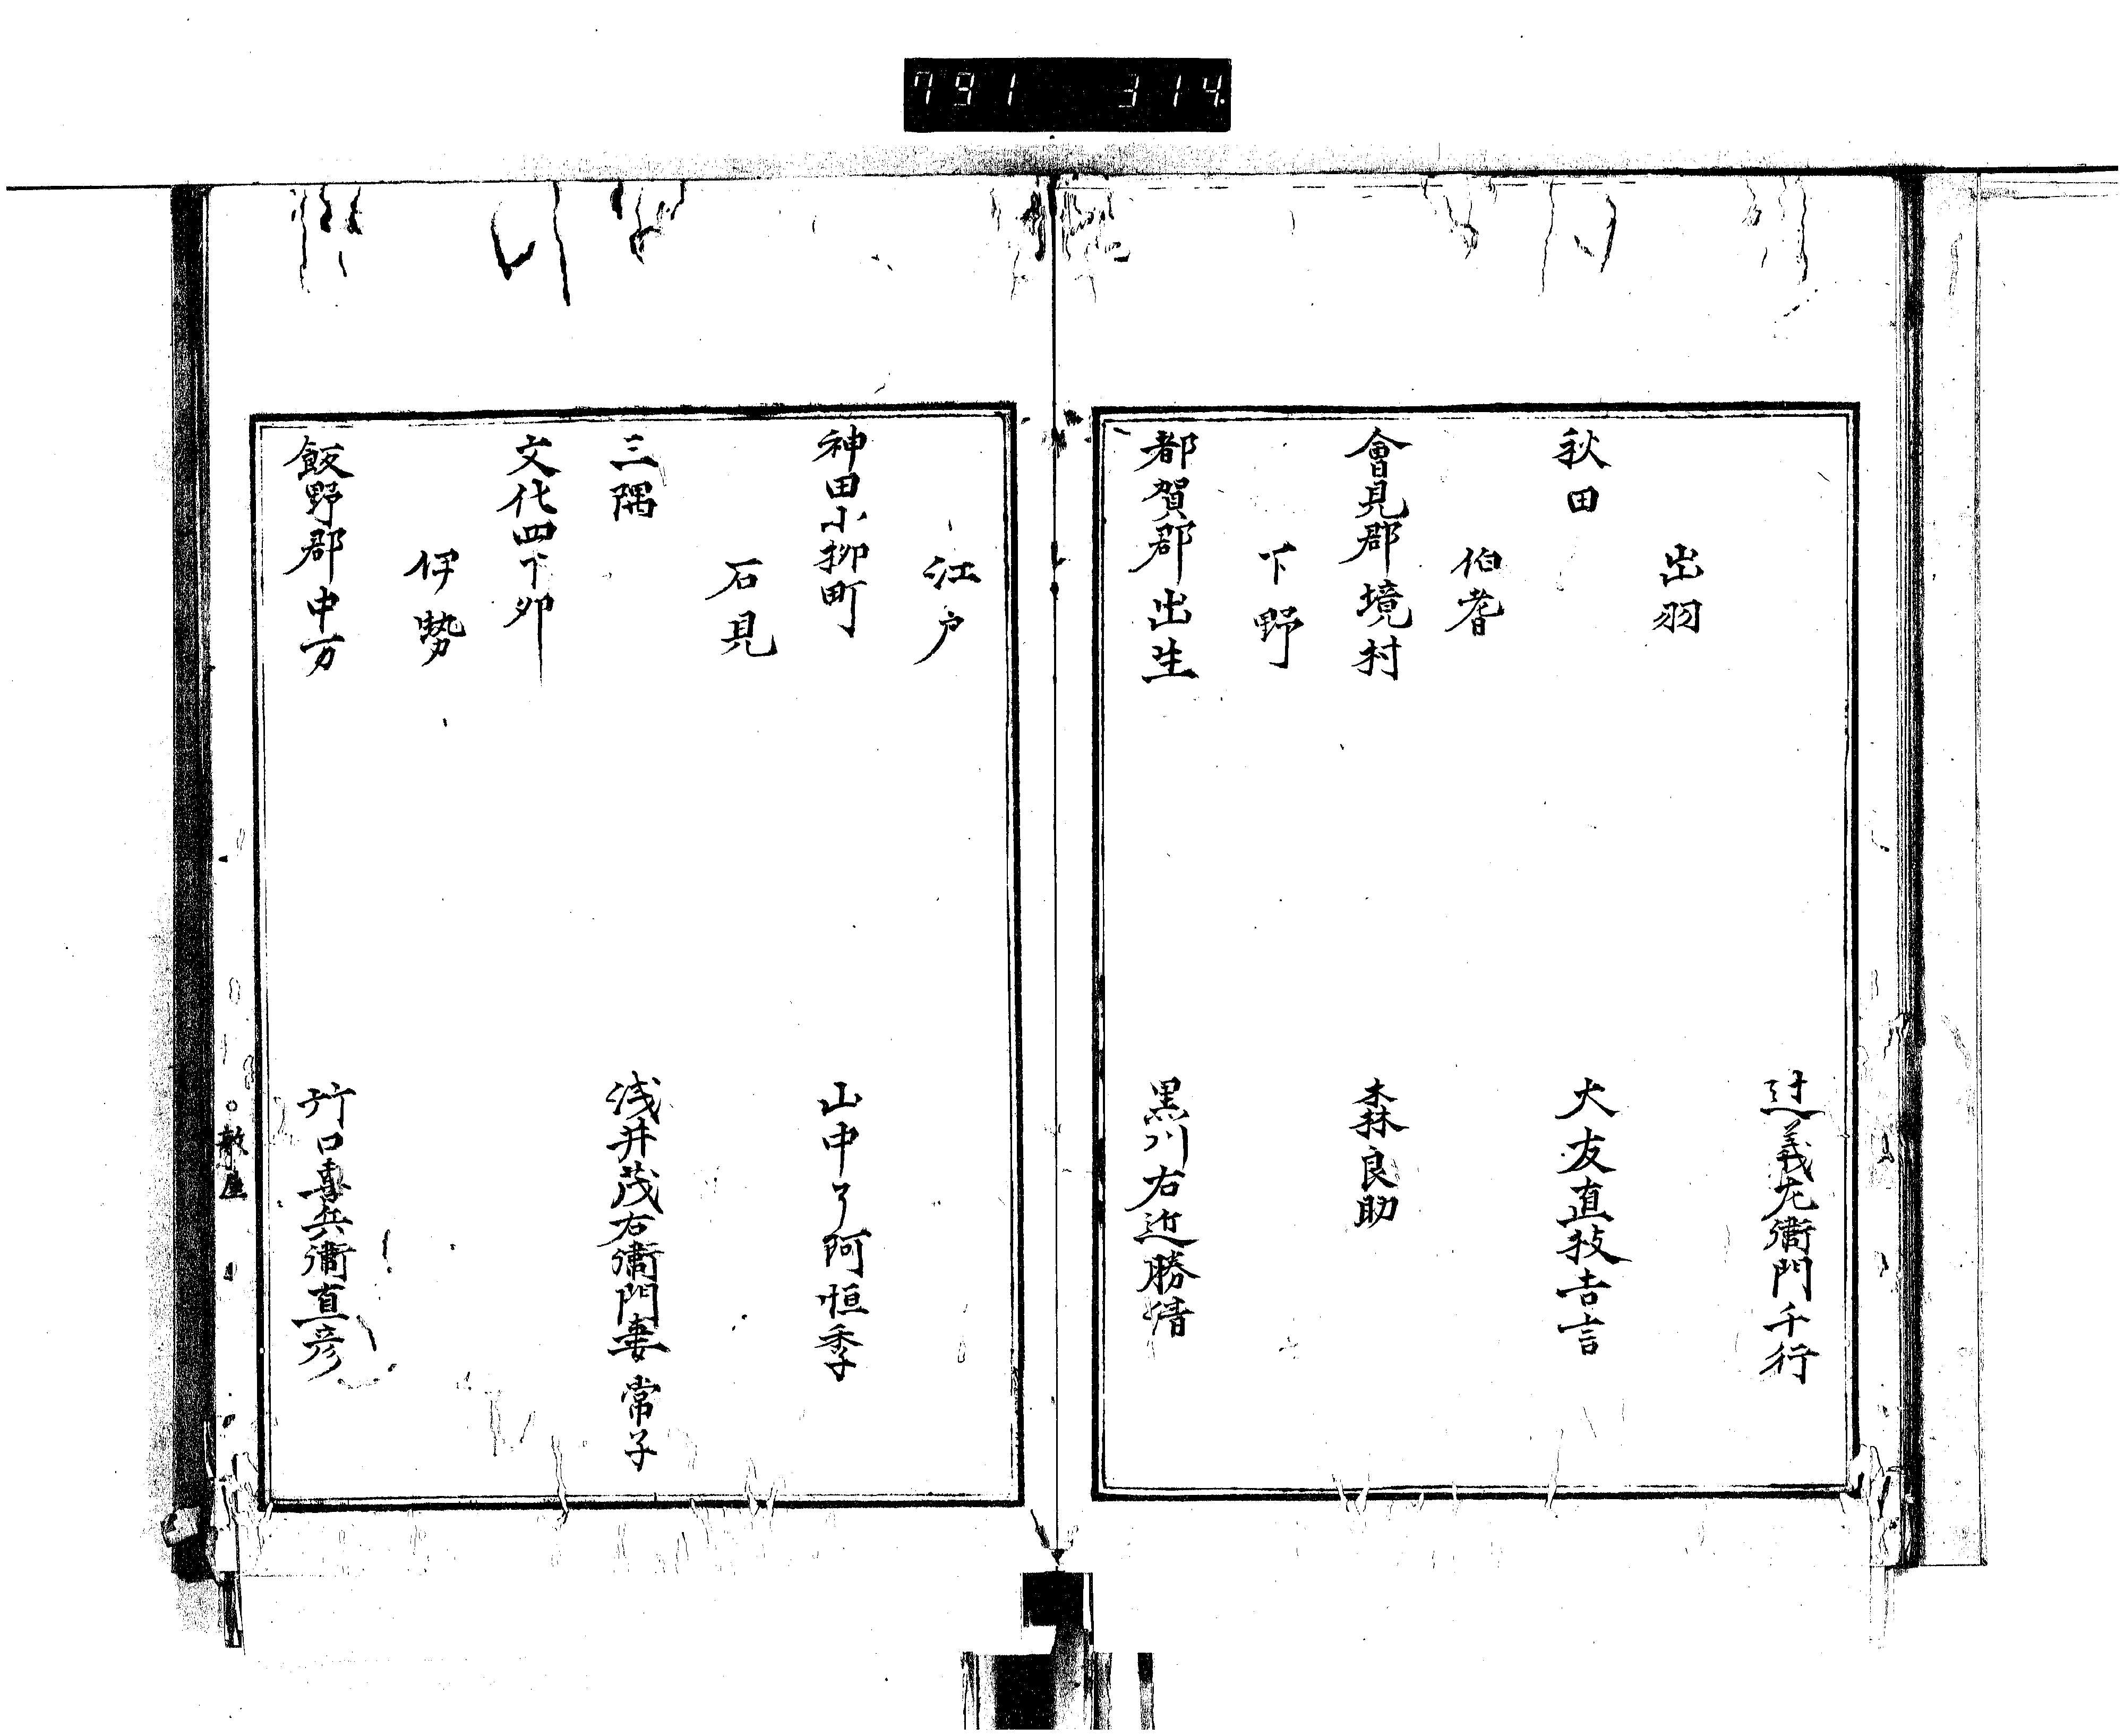 791 314
辻義左衛門千行
出羽
秋田 大友直枝吉言
伯耆
會見郡境村 森良助
下野
都賀郡出生 黒川右近勝清
江戸
神田小柳町 山中了阿恒季
石見
三隅 浅井茂右衛門妻常子
文化四丁卯
伊勢
飯野郡中万 竹口喜兵衛直彦